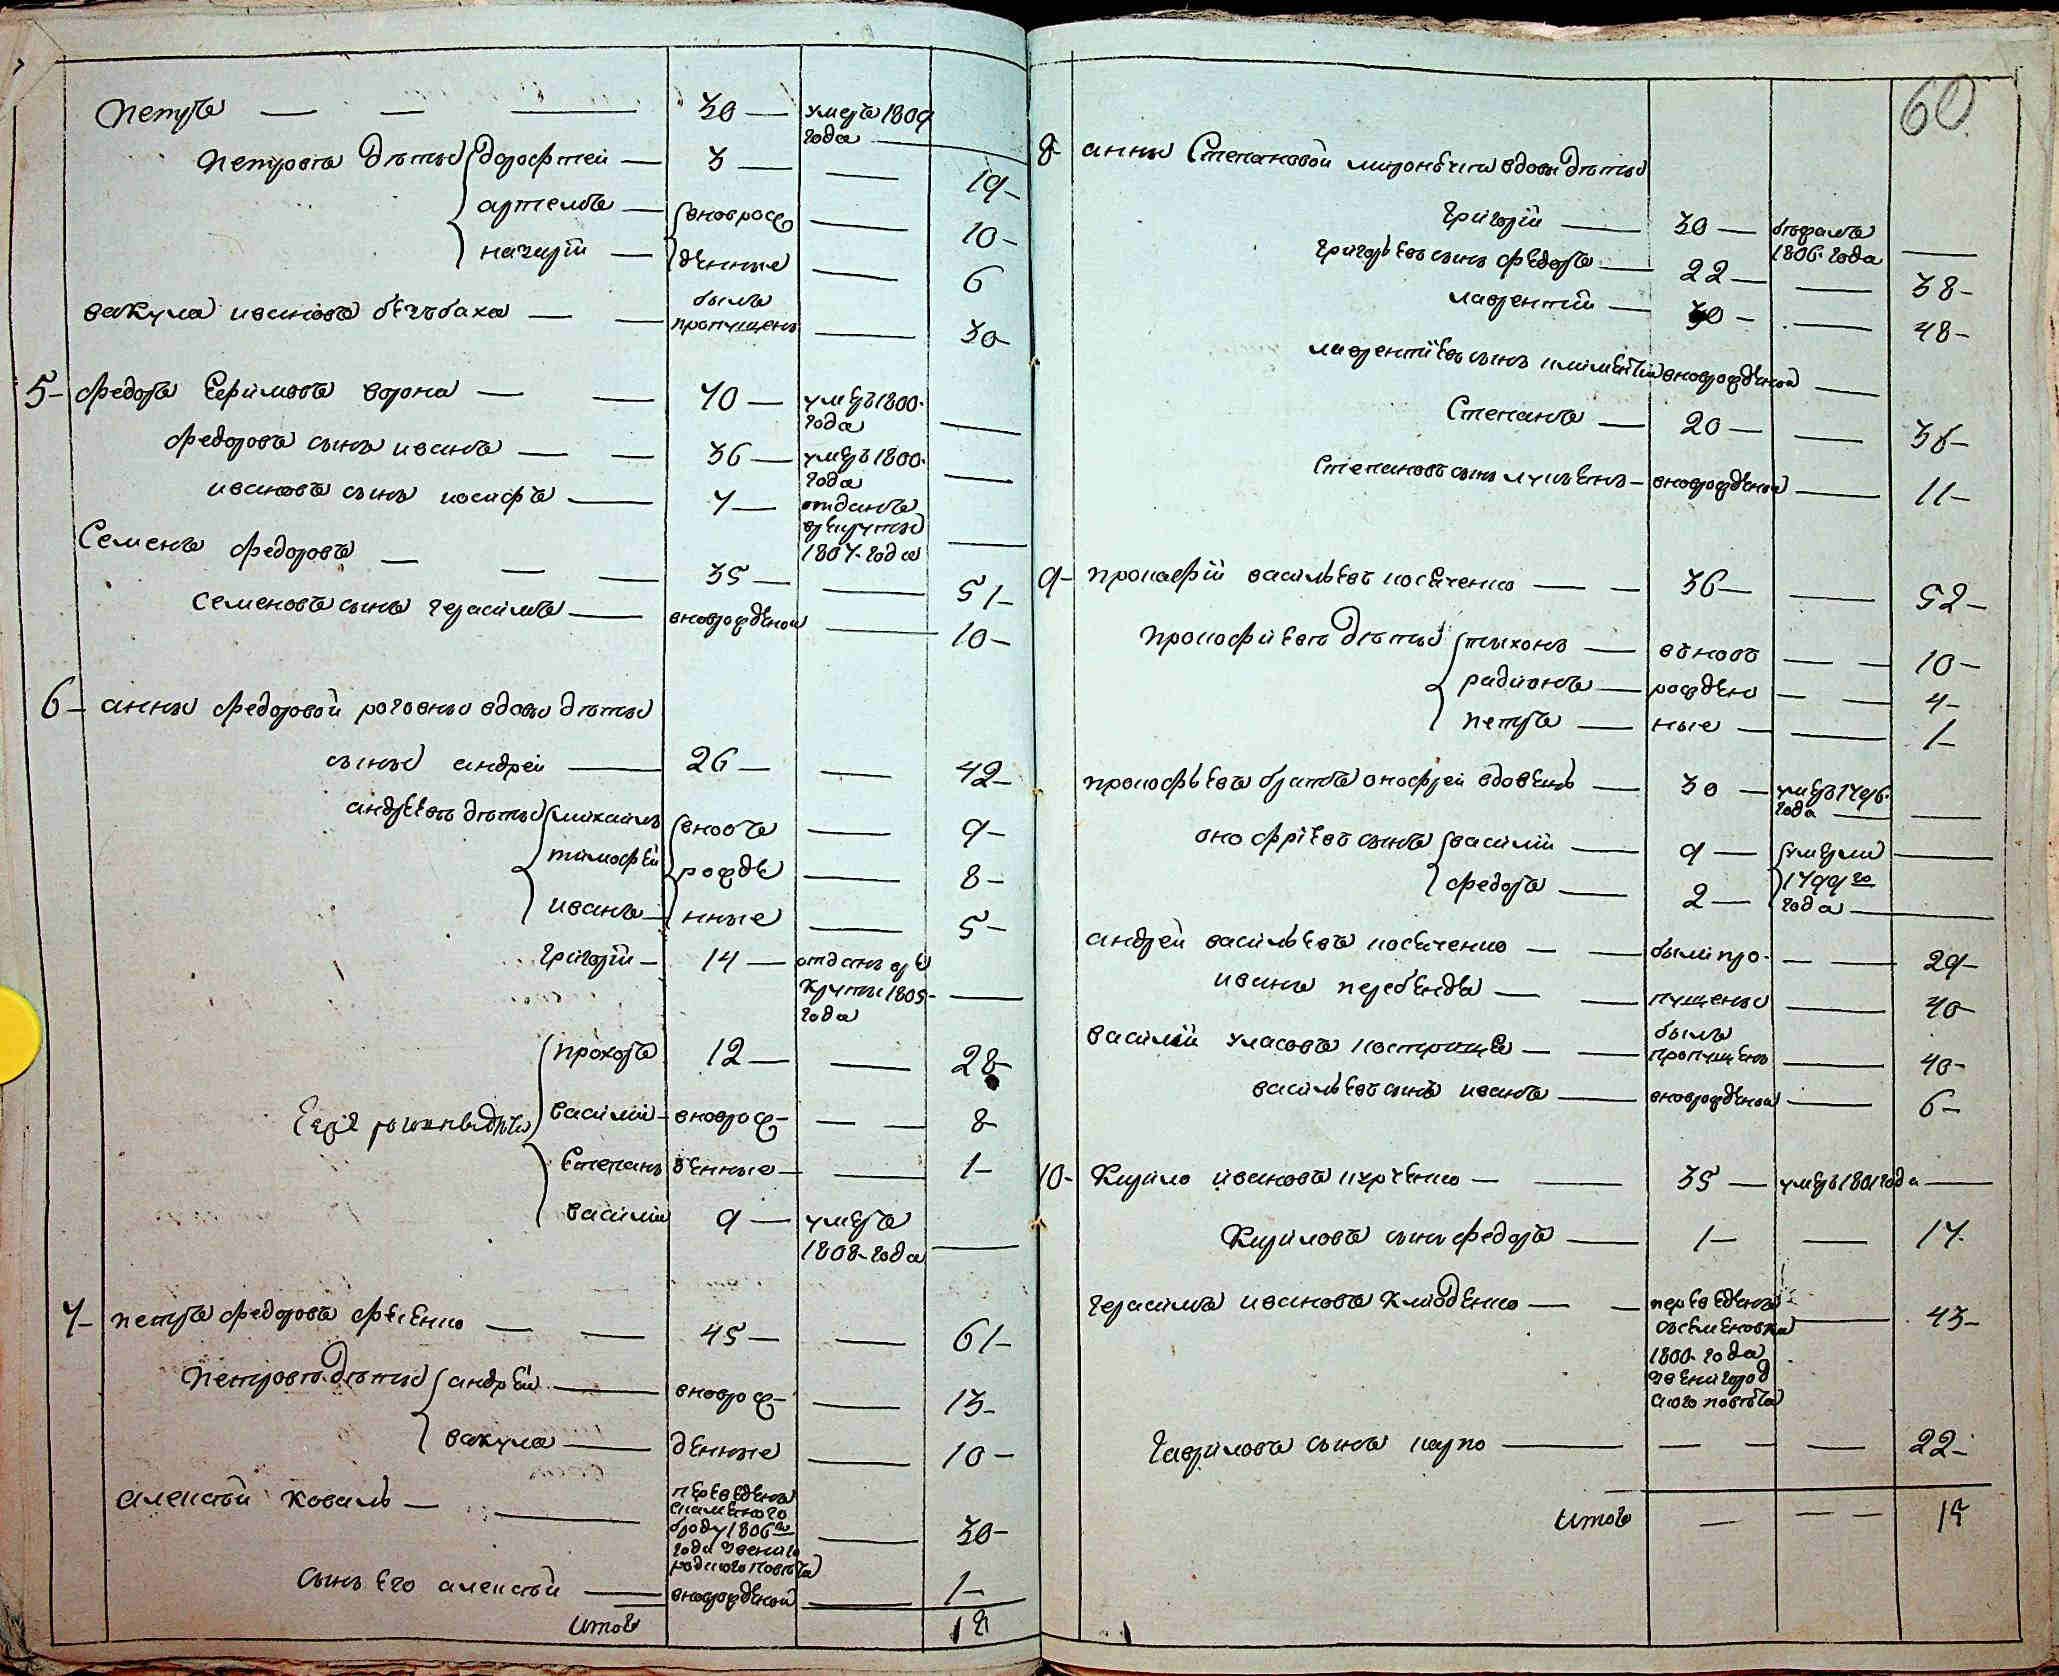 Петръ — — — 30 — умеръ 1809 года —
Петровы дѣты дорофтей — 3 — — 19 —
артемъ — вноврож — 10 —
назарій — денные — 6
вакула ивановъ — — былъ пропущенъ — 30 —
5 — федоръ Ефимовъ ворона — — 40 — умеръ 1800 года —
федоровъ сынъ иванъ — — 36 — умеръ 1800 года —
ивановъ сынъ иосифъ — 7 — отданъ врекруты 1807 года —
Семенъ федоровъ — — — 35 — — 51 —
семеновъ сынъ герасимъ — вноврожденой — 10 —
6 — анны федоровой роговны вдовы дѣты
сыны андрей — 26 — — 42 —
андреевы дѣты михаилъ — вновъ — 9 —
тимофей — рожде — 8 —
иванъ — нные — 5 —
григорій — 14 — отданъ вре круты 1805 года —
прохоръ 12 — — 28 —
василій — вноврож — — — 8
Степанъ денные — — 1 —
василій 9 — умеръ 1808 года —
7 — петръ федоровъ фесенко — — 45 — — 61 —
Петровы дѣты андрей — вноврож — — 13 —
вакула — денные — 10 —
алексей коваль — — переведенъ скаменого броду 1806го года звениго родского повѣта — 30 —
сынъ его алексей — вноврожденой — 1 —
итого 18
60
8 анны Степановой миронъчихи вдовы дѣты
григорій — 30 — бѣжалъ 1806 года —
григорьевъ сынъ федоръ — 22 — — 38 —
лаврентій — 30 — — 48 —
лаврентіевъ сынъ вноврожденой —
Степанъ — 20 — — 36 —
Степановъ сынъ — вноврожденой — 11 —
9 — прокофій васильевъ косяченко — — 36 — — 52 —
прокофіевы дѣты тыхонъ — вѣновъ — — 10 —
радионъ — рожден — — 4 —
петръ — ные — — 1 —
прокофьевъ братъ онофрей вдовецъ — 30 — умеръ 1796 года — —
онофріевъ сынъ василій — 9 — умерли —
федоръ — 2 — 1799го года —
андрей васильевъ косяченко — — были про — — 29 —
иванъ перебендя — — пущены — 40 —
василій уласовъ — — былъ пропущенъ — 40 —
васильевъ сынъ иванъ — вноврожденой — 6 —
10 — Кирило ивановъ — — 35 — умеръ 1801 года —
Кириловъ сынъ федоръ — 1 — — 17
герасимъ ивановъ — — переведенъ съсеменовки 1800 года звенигород ского повѣта — 43 —
гавриловъ сынъ карпо — — — — 22 —
итого — — — 15